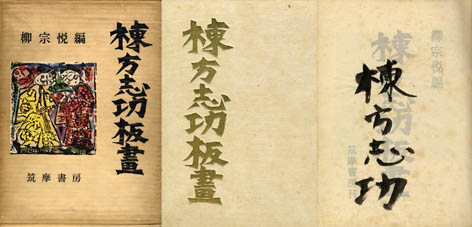 柳宗悦編
棟方志功板畫
筑摩書房
棟方志功板畫
柳宗悦編
棟方志功板畫
筑摩書房刊
棟方志功